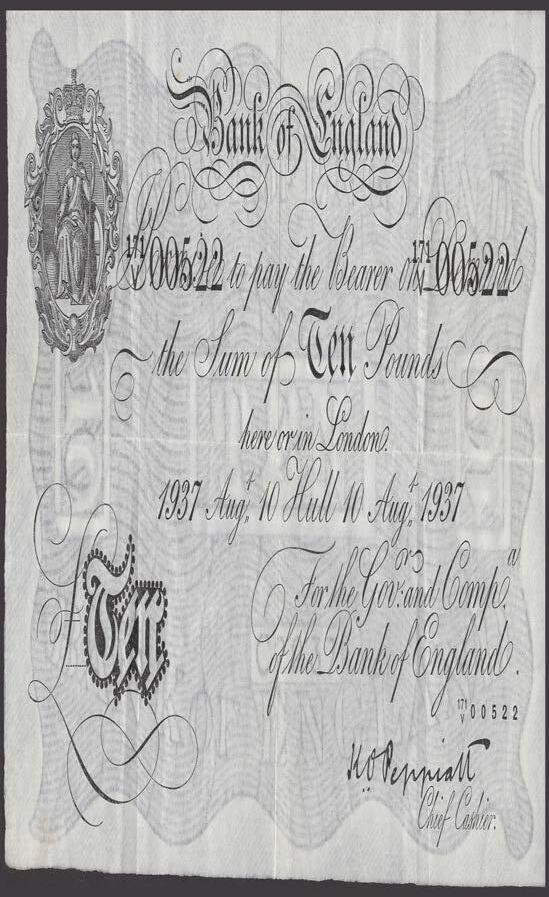 Bank of England
171/V 00522 to pay the Bearer on 171/V 00522
the Sum of Ten Pounds
here or in London.
1937 Augt. 10 Hull 10 Augt. 1937
For the Govr. and Compa.
of the Bank of England.
£ Ten
171/V 00522
K O Peppiatt
Chief Cashier.